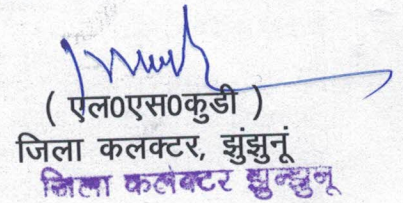 ( एल0एस0कुडी )
जिला कलक्टर, झुंझुनूं
जिला कलेक्टर झुन्झुनू